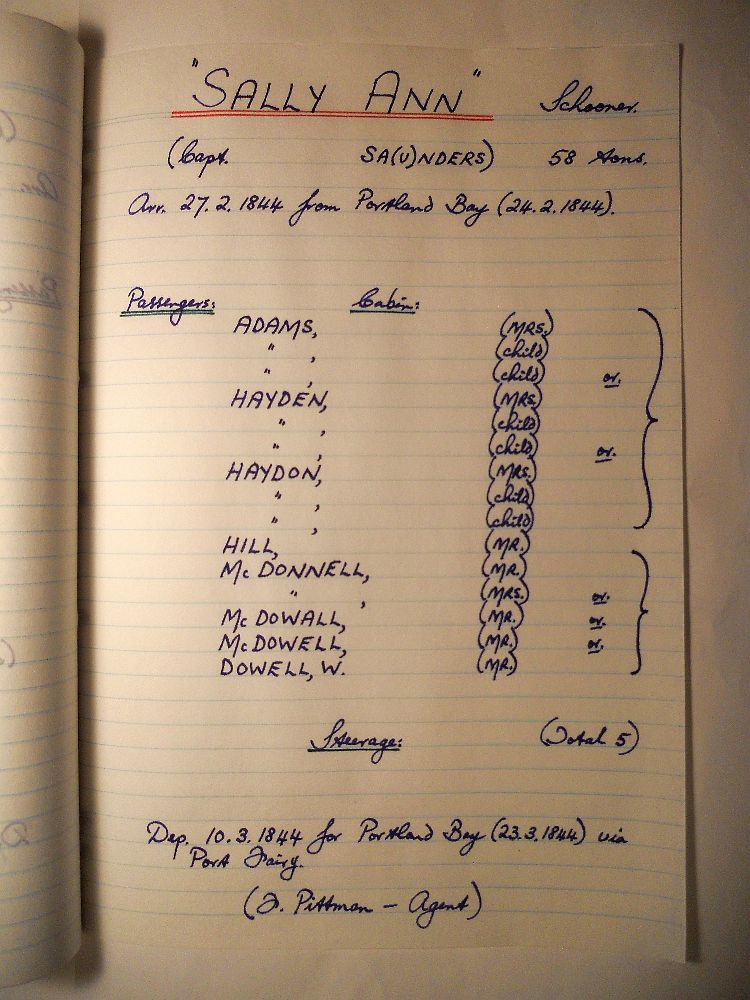 "SALLY ANN" Schooner.
(Capt. SA(U)NDERS) 58 tons.
Arr. 27.2.1844 from Portland Bay (24.2.1844).
Passengers: Cabin:
ADAMS, (MRS.)
" , (child)
" , (child) or.
HAYDEN, (MRS.)
" , (child)
" , (child) or.
HAYDON, (MRS.)
" , (child)
" , (child)
HILL, (MR.)
McDONNELL, (MR.)
" , (MRS.) or.
McDOWALL, (MR.) or.
McDOWELL, (MR.) or.
DOWELL, W. (MR.)
Steerage: (Total 5)
Dep. 10.3.1844 for Portland Bay (23.3.1844) via
Port Fairy.
(J. Pittman – Agent)